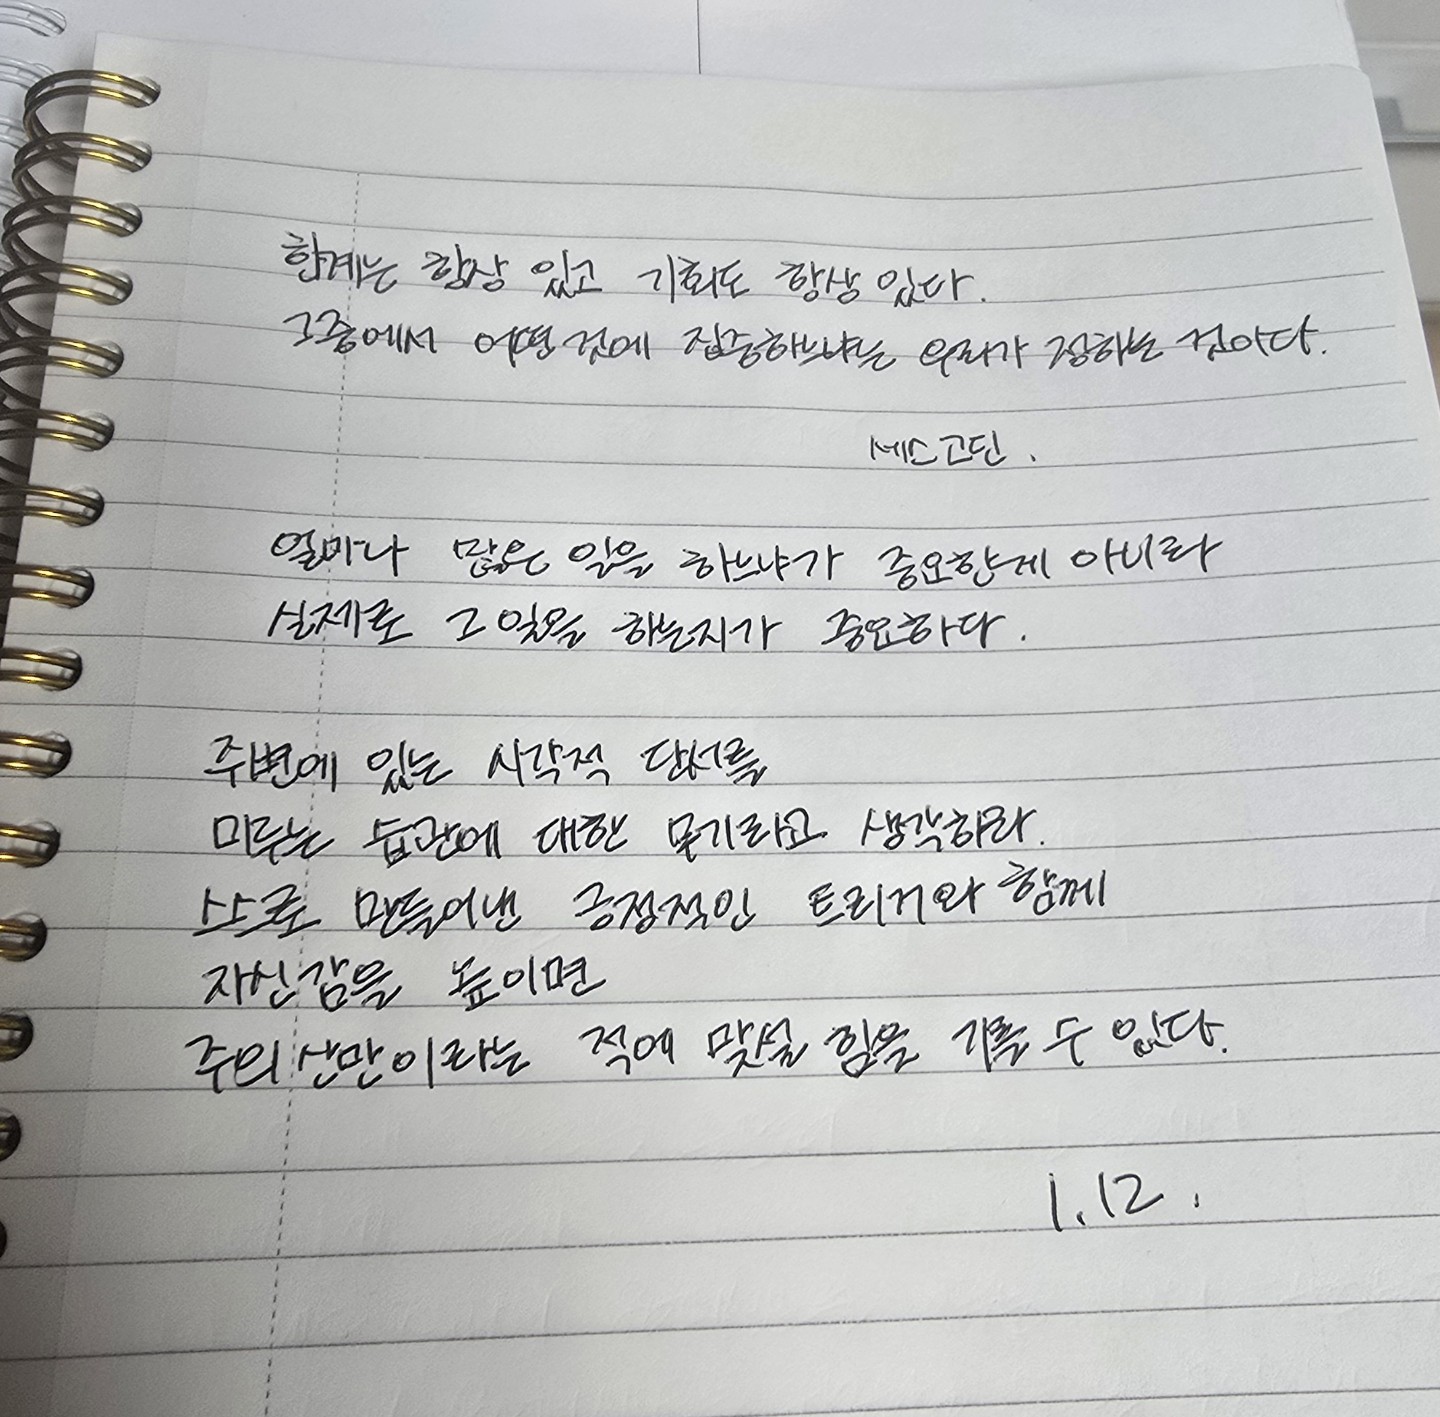 한계는 항상 있고 기회도 항상 있다.
그중에서 어떤 것에 집중하느냐는 우리가 정하는 것이다.
세스고딘.
얼마나 많은 일을 하느냐가 중요한게 아니라
실제로 그 일을 하는지가 중요하다.
주변에 있는 시각적 단서를
미루는 습관에 대한 무기라고 생각하라.
스스로 만들어낸 긍정적인 트리거와 함께
자신감을 높이면
주의산만이라는 적에 맞설 힘을 기를 수 있다.
1.12.